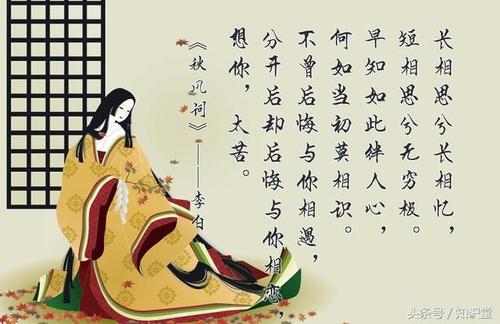 长相思兮长相忆，
短相思兮无穷极。
早知如此绊人心，
何如当初莫相识。
不曾后悔与你相遇，
分开后却后悔与你相恋，
想你，太苦。
《秋风词》——李白
头条号 / 知识堂